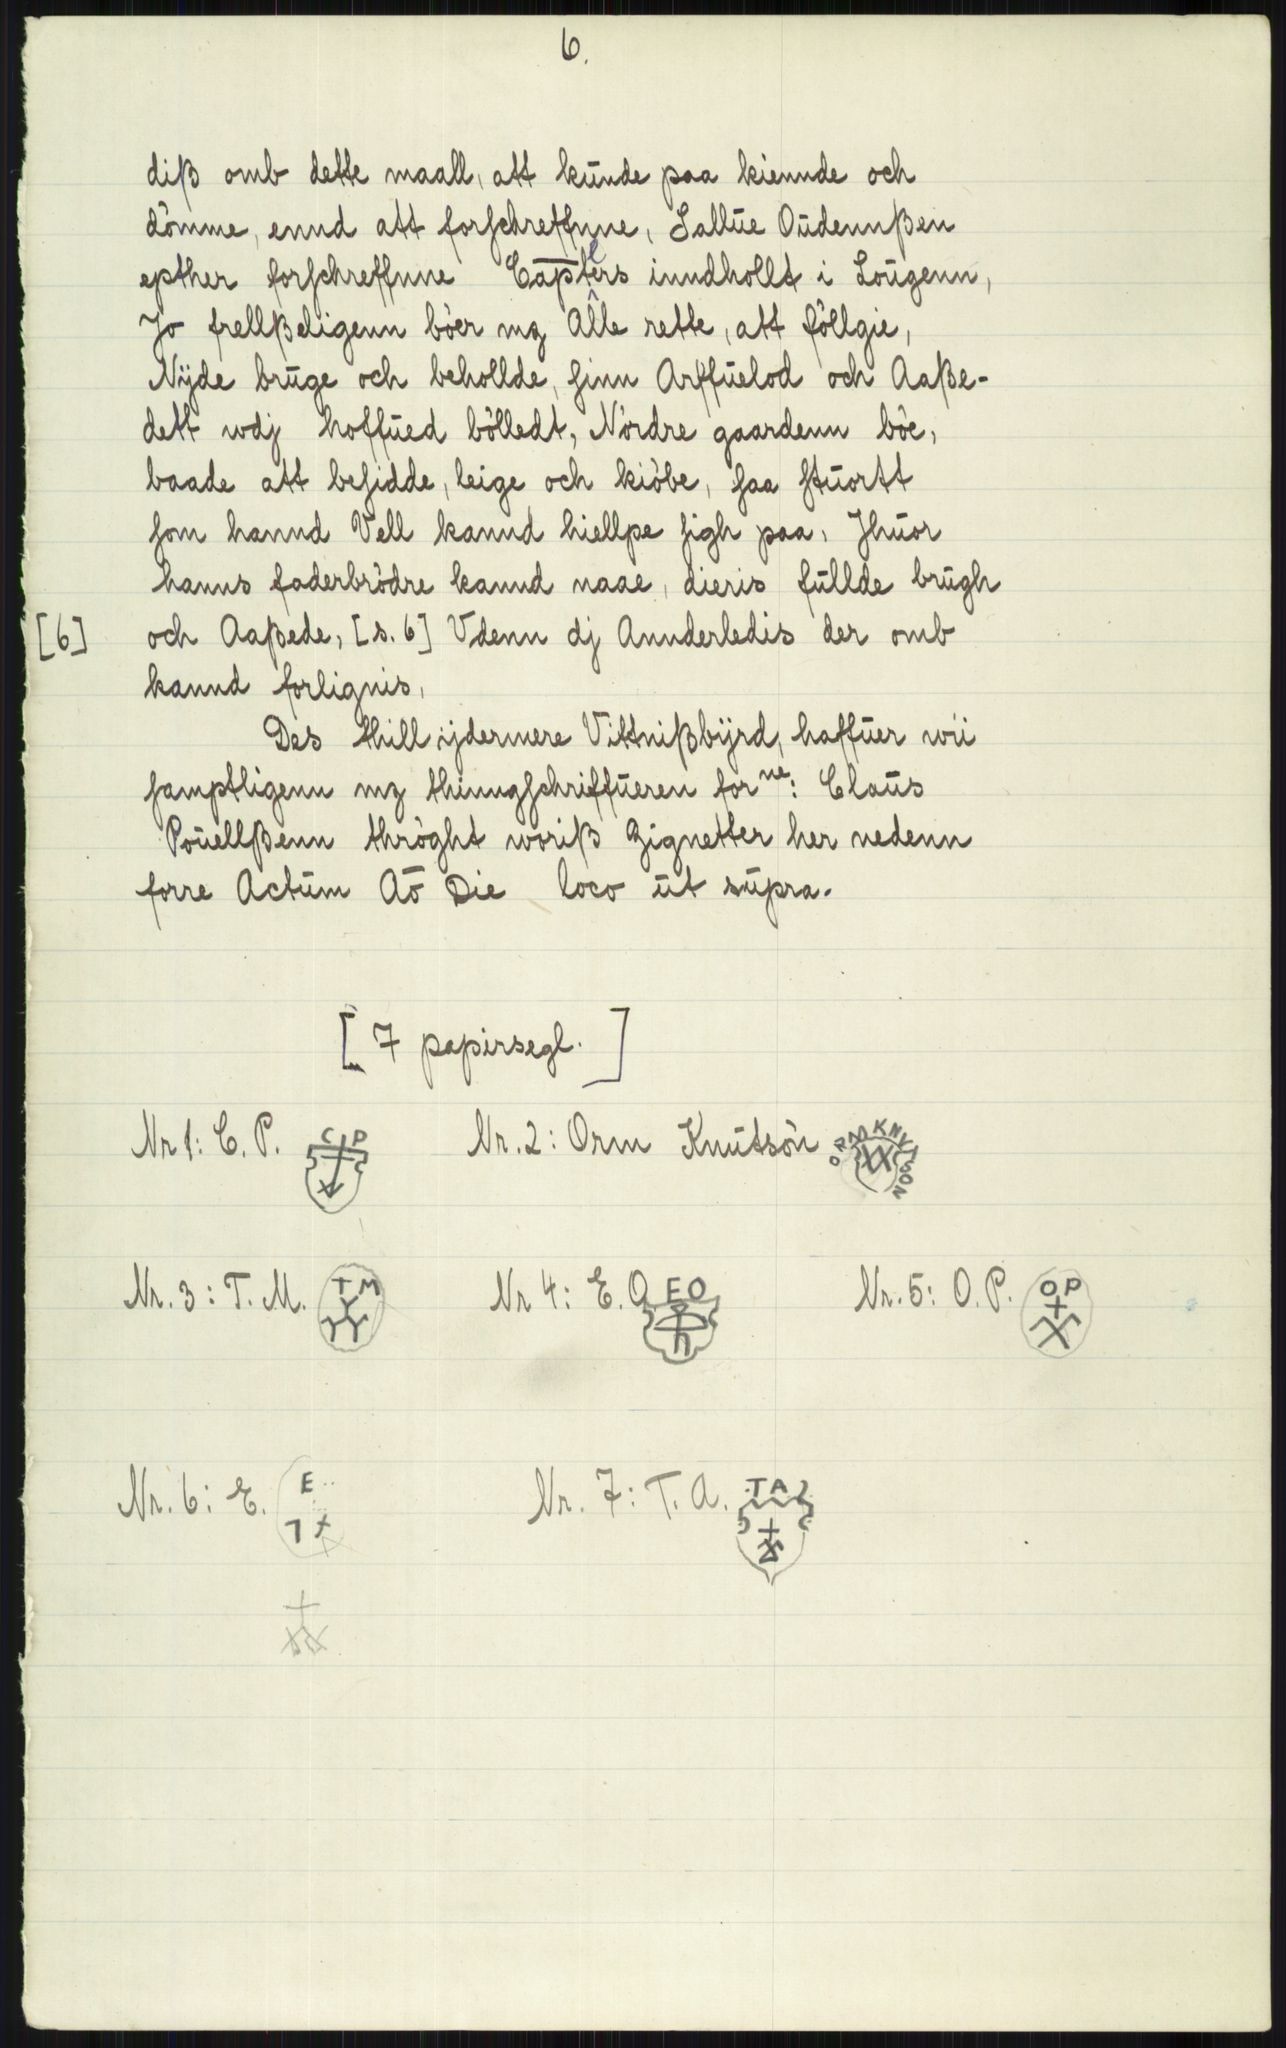 6.
diß omb dette maall, att kunde paa kiennde och
dömme, ennd att forschreffnne, Sallue Oudennßen
epther forschreffnne Captlers inndhollt i Lougenn,
Jo frellßeligenn böer mz Alle rette, att föllgie,
Nÿde bruge och behollde, sinn Arffuelod och Aaße-
dett wdj hoffued bölledt, Nördre gaardenn böe,
baade att besidde, leige och kiöbe, saa stuortt
som hannd Vell kannd hiellpe sigh paa, Jhuor
hanns faderbrödre kannd naae, dieris fullde brugh
[6] och Aaßede, [s. 6] Vdenn dj Annderledis der omb
kannd forlignis,
Des thill ijdermere Vittnißbÿrd, haffuer wii
samptligenn mz thinngschriffueren forne: Claus
Pouellßenn thröght woriß Zignetter her nedenn
forre Actum Ao Die loco ut supra.
[7 papirsegl.]
Nr 1: C. P. C P Nr. 2: Orm Knutsön ORM KNVTSON
Nr. 3: T. M. T M Nr 4: E. O E O Nr. 5: O. P. O P
Nr. 6: E. E Nr. 7: T. A. T A